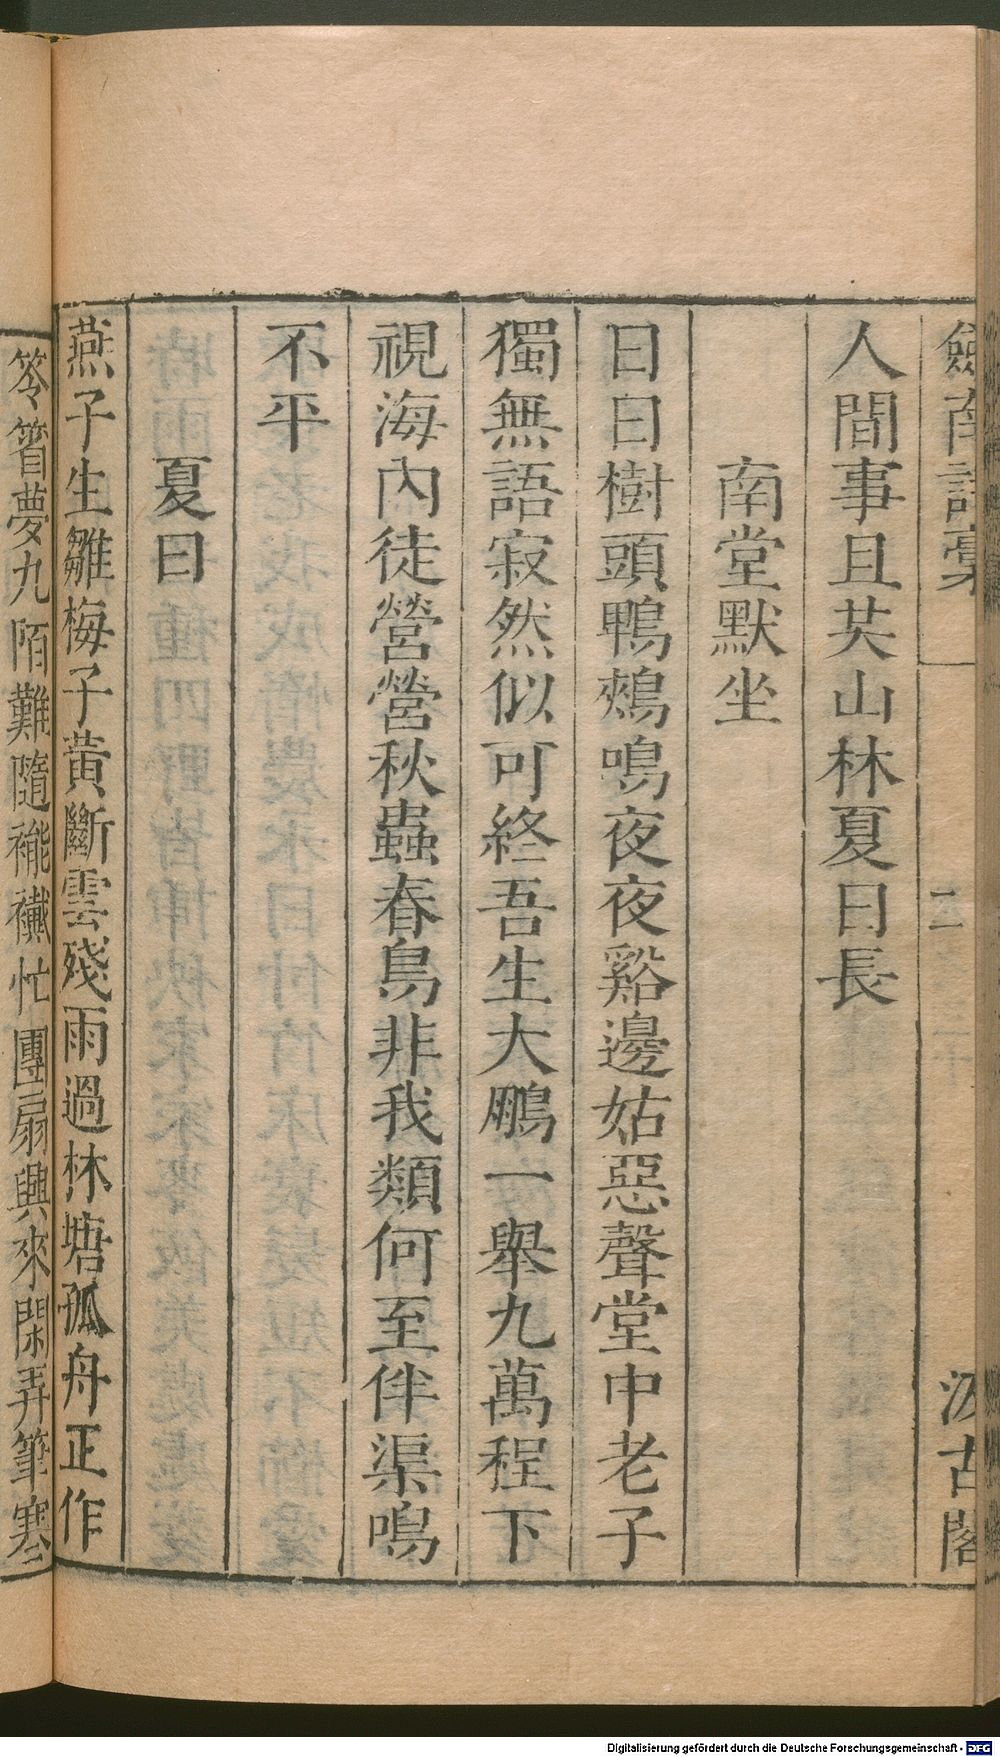 劍南詩稾
二
汲古閣
人間事且共山林夏日長
南堂默坐
日日樹頭鴨鵊鳴夜夜谿邊姑惡聲堂中老子
獨無語寂然似可終吾生大鵬一舉九萬程下
視海內徒營營秋蟲春鳥非我類何至伴渠鳴
不平
夏日
燕子生雛梅子黃斷雲殘雨過林塘孤舟正作
笭箵夢九陌難隨襹襶忙團扇興來閑弄筆寒
Digitalisierung gefördert durch die Deutsche Forschungsgemeinschaft - DFG